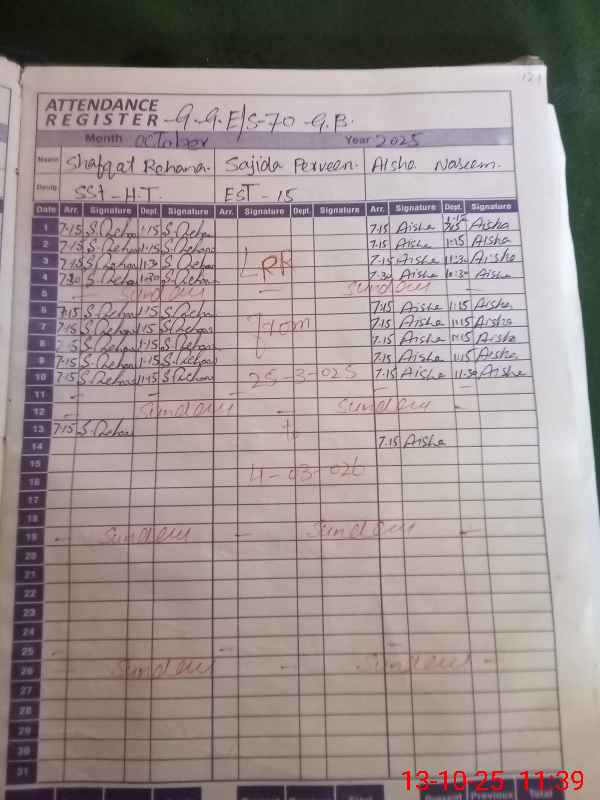 121
ATTENDANCE
REGISTER -G.G.E/S-70-G.B.
Month October Year 2025
Name Shafqat Rehana. Sajida Perveen. Aisha Naseem.
Desig. SST-H.T. EST-15
Date Arr. Signature Dept. Signature Arr. Signature Dept. Signature Arr. Signature Dept. Signature
1 7-15 S.Rehan 1-15 S.Rehan 7.15 Aisha 1-15 Aisha
2 7-15 S.Rehan 1-15 S.Rehana 7.15 Aisha 1.15 Aisha
3 7-15 S.Rehan 11-30 S.Rehan LRK 7-15 Aisha 11:30 Aisha
4 7-30 S.Rehan 1-30 S.Rehan 7.30 Aisha Aisha
5 - Sunday - Sunday -
6 7-15 S.Rehan 1-15 S.Rehan 7.15 Aisha 1:15 Aisha
7 7-15 S.Rehan 1-15 S.Rehana from 7.15 Aisha 1:15 Aisha
8 7-15 S.Rehan 1-15 S.Rehan 7.15 Aisha 1:15 Aisha
9 7-15 S.Rehan 1-15 S.Rehan 7.15 Aisha 1:15 Aisha
10 7-15 S.Rehan S.Rehan 25-3-025 7-15 Aisha 11:30 Aisha
11 - - -
12 - Sunday - Sunday -
13 7-15 S.Rehan to
14 7.15 Aisha
15
16 4-03-026
17
18
19 - Sunday - Sunday -
20
21
22
23
24
25 - - -
26 - Sunday - Sunday -
27
28
29
30
31
Present Previous Total
13-10-25 11:39